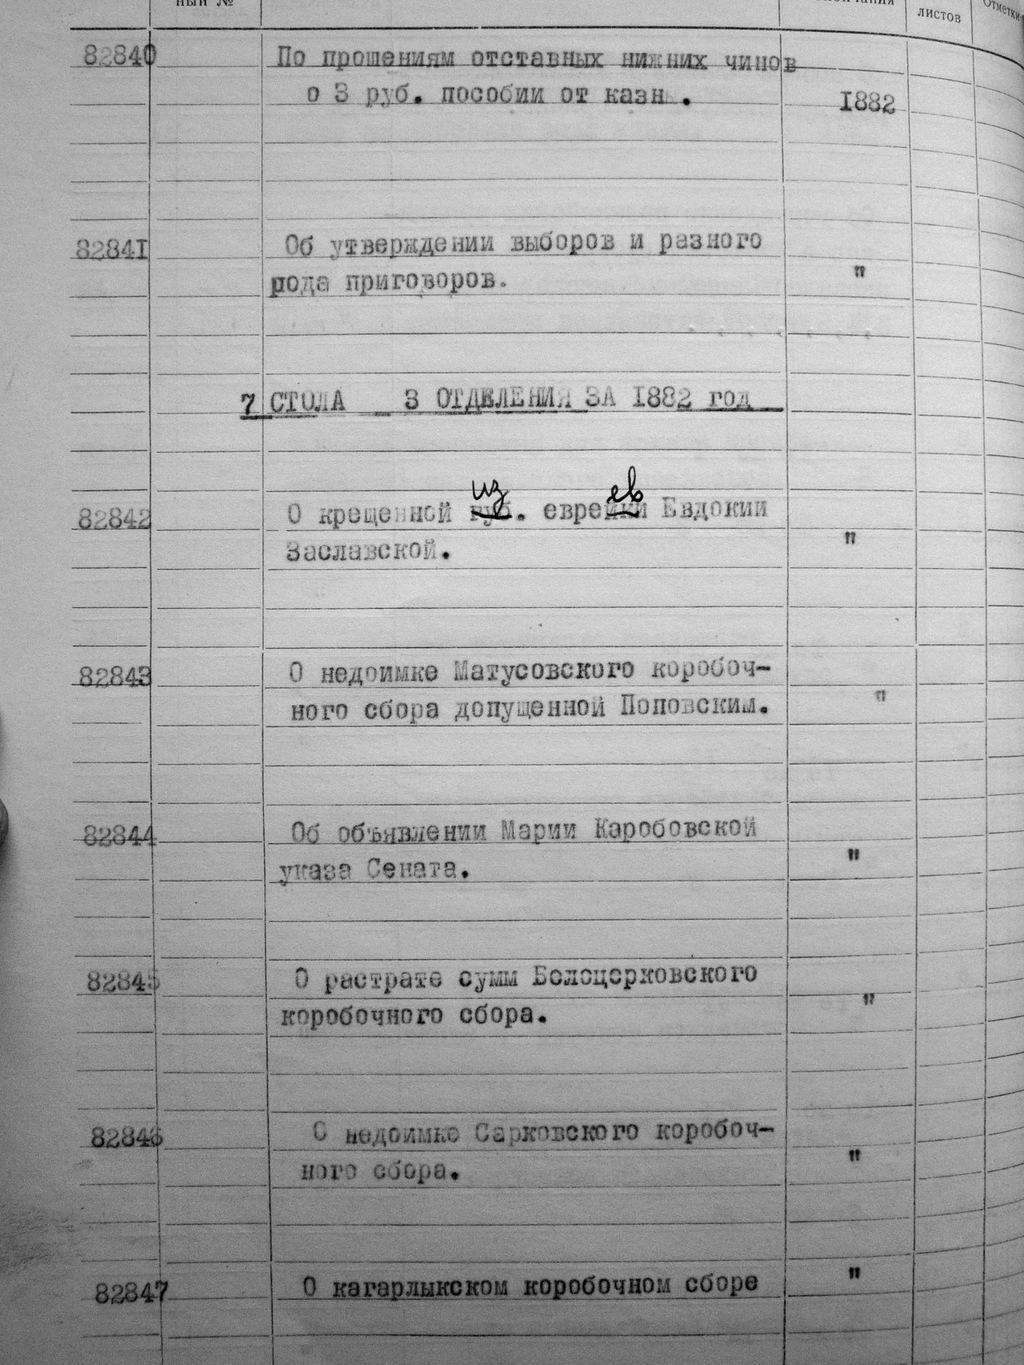 ный №
листов
Отметки
82840 По прошениям отставных нижних чинов
о 3 руб. пособии от казн . 1882
82841 Об утверждении выборов и разного
рода приговоров. "
7 СТОЛА 3 ОТДЕЛЕНИЯ ЗА 1882 год
из ев
82842 О крещенной губ. еврейки Евдокии
Заславской. "
82843 О недоимке Матусовского коробоч-
ного сбора допущенной Поповским. "
82844 Об объявлении Марии Каробовской
указа Сената. "
82845 О растрате сумм Белоцерковского
коробочного сбора. "
82846 О недоимке Сарковского коробоч-
ного сбора. "
82847 О кагарлыкском коробочном сборе "